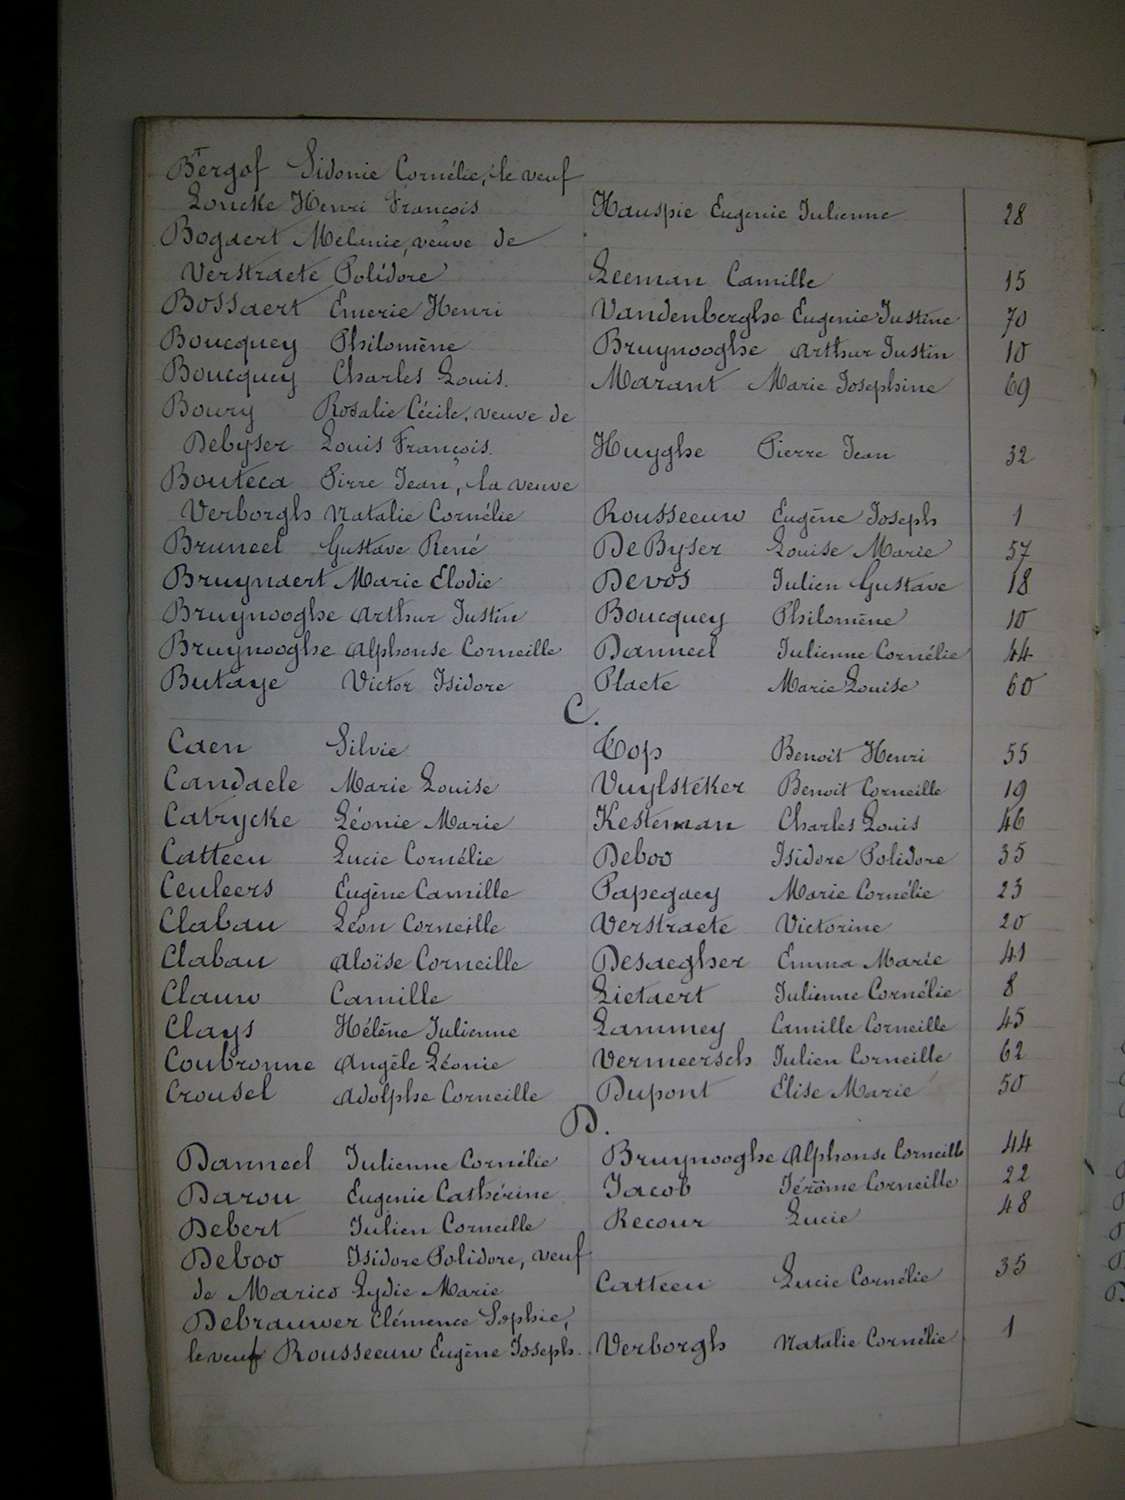 BTergof Sidonie Cornélie, le veuf
Loncke Henri François Hauspie Eugenie Julienne 28
Bogaert Mélanie, veuve de
Verstraete Polidore Leeman Camille 15
Bossaert Emerie Henri Vandenberghe Eugenie Justine 70
Boucquey Philomène Bruynooghe Arthur Justin 10
Boucquey Charles Louis. Marant Marie Josephine 69
Boury Rosalie Cécile, veuve de
Debyser Louis François. Huyghe Pierre Jean 32
Bouteca Pirre Jean, la veuve
Verborgh Natalie Cornélie Rousseeuw Eugène Joseph 1
Bruneel Gustave René DeByser Louise Marie 57
Bruynaert Marie Elodie Devos Julien Gustave 18
Bruynooghe Arthur Justin Boucquey Philomène 10
Bruynooghe Alphonse Corneille Danneel Julienne Cornélie 44
Butaye Victor Isidore Plaete Marie Louise 60
C.
Caen Silvie Top Benoit Henri 55
Candaele Marie Louise Vuylsteker Benoit Corneille 19
Catrycke Léonie Marie Kesteman Charles Louis 46
Catteeu Lucie Cornélie Deboo Isidore Polidore 35
Ceuleers Eugène Camille Papegaey Marie Cornélie 23
Clabau Léon Corneille Verstraete Victorine 20
Clabau Aloïse Corneille Desaegher Emma Marie 41
Clauw Camille Lietaert Julienne Cornélie 8
Clays Hélène Julienne Lammey Camille Corneille 45
Coubronne Angèle Léonie Vermeersch Julien Corneille 62
Crousel Adolphe Corneille Dupont Elise Marie 50
D.
Danneel Julienne Cornélie Bruynooghe Alphonse Corneille 44
Darou Eugenie Cathérine Jacob Jérôme Corneille 22
Debert Julien Corneille Recour Lucie 48
Deboo Isidore Polidore, veuf
de Marico Lydie Marie Catteeu Lucie Cornélie 35
Debrauwer Clémence Sophie,
le veuf Rousseeuw Eugène Joseph. Verborgh Natalie Cornélie 1